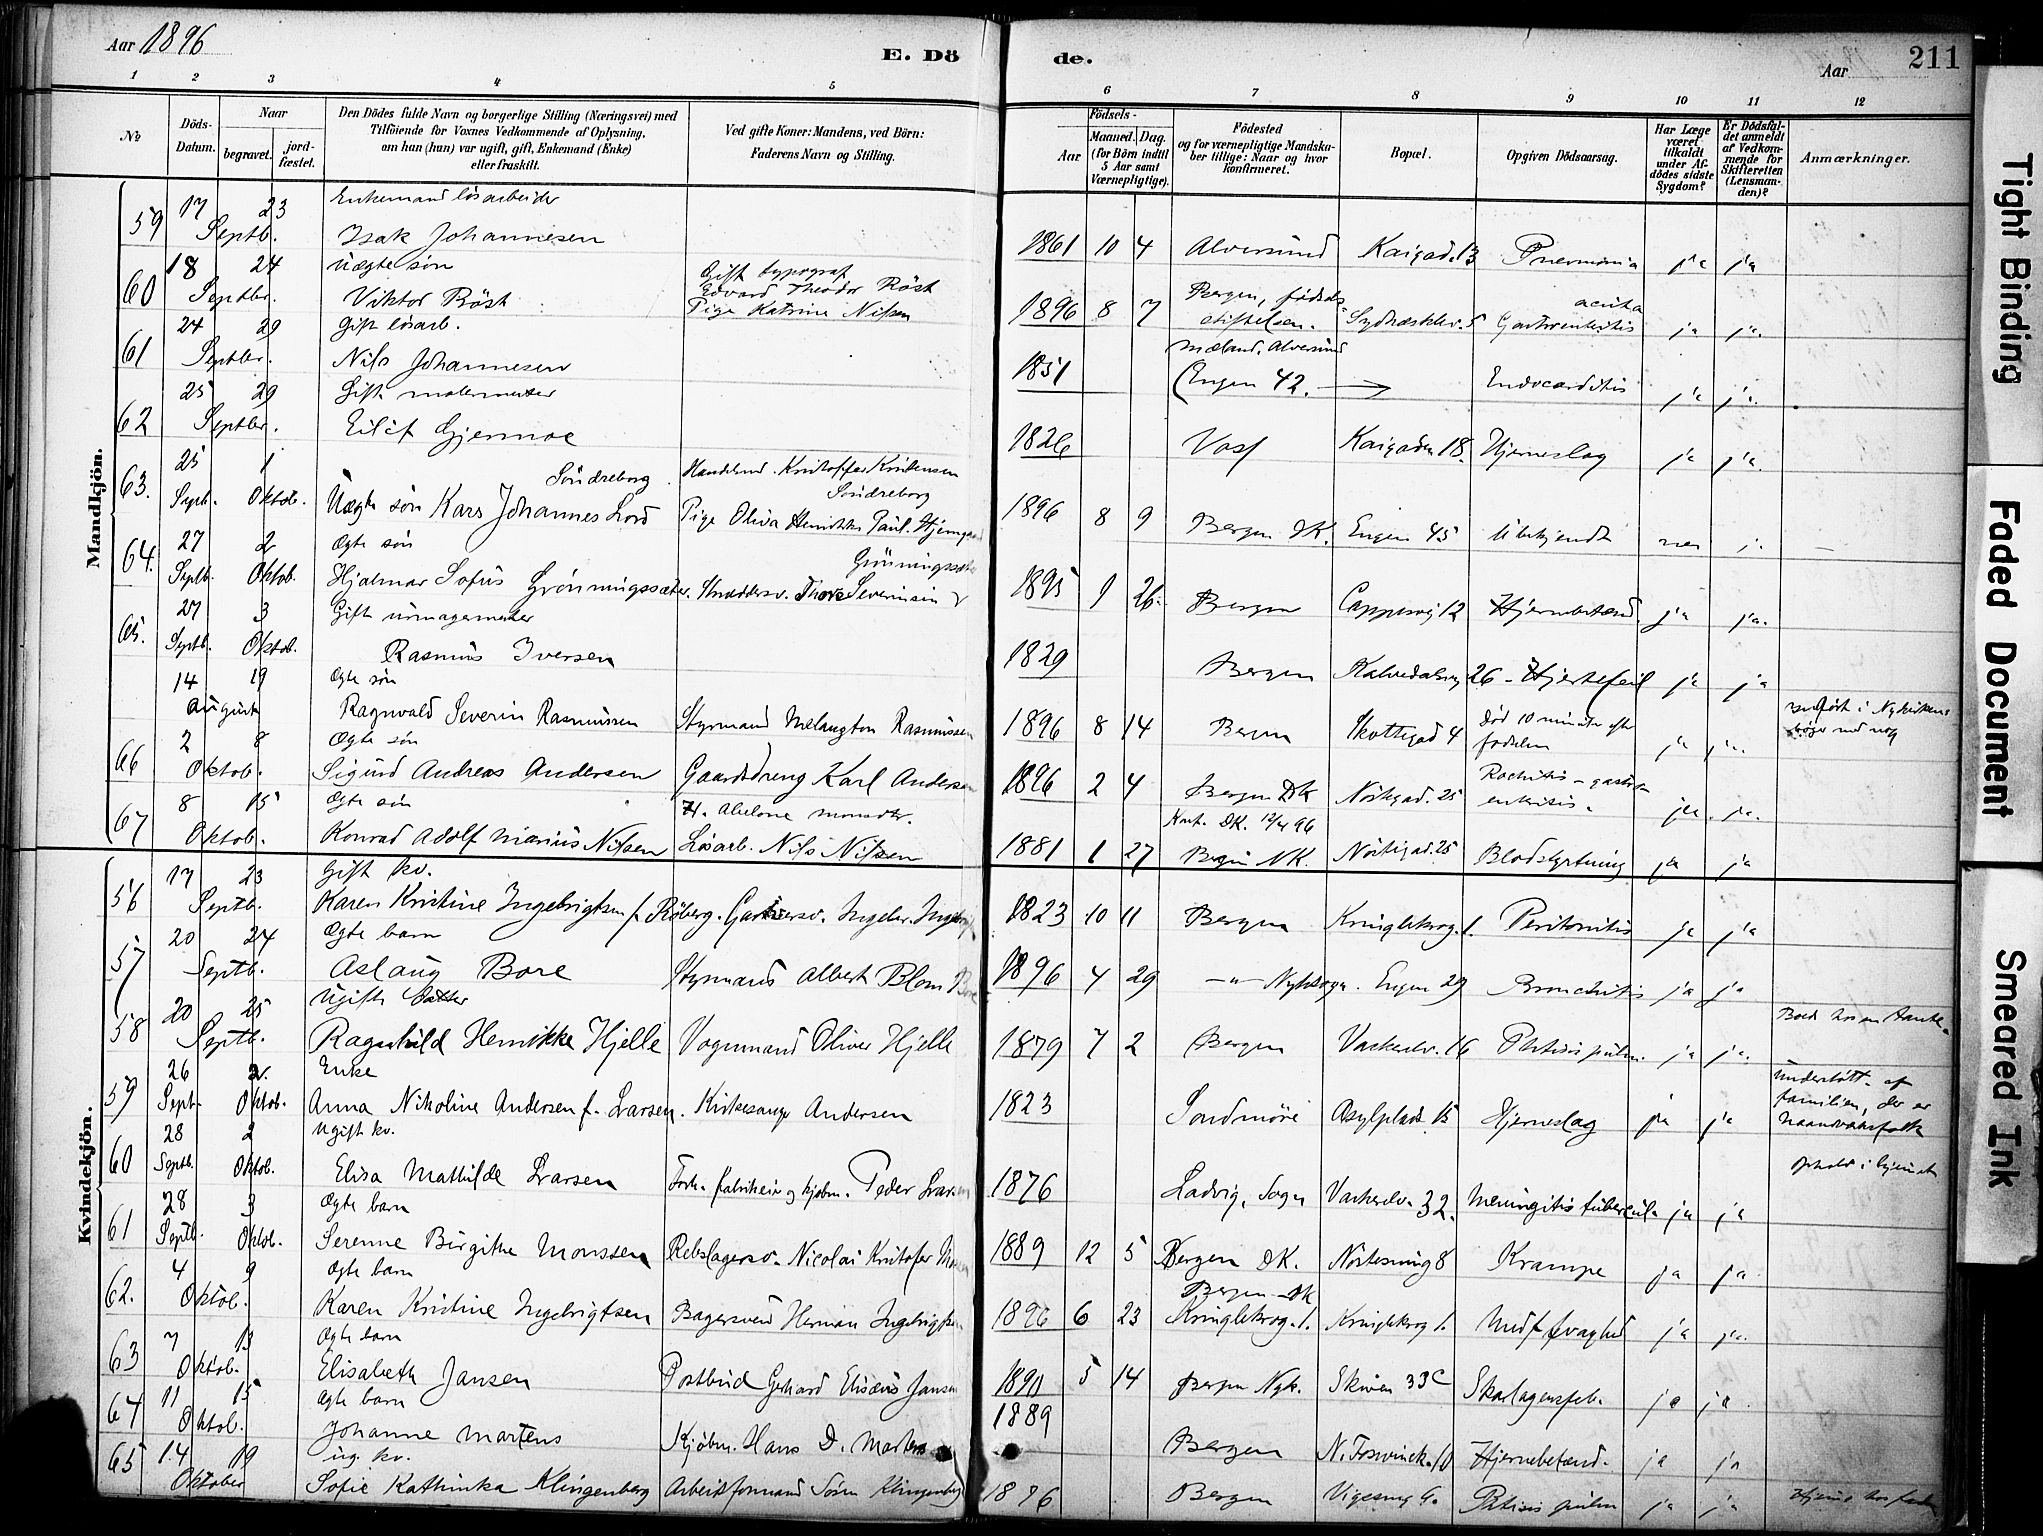 Aar 1896
E. Döde.
Aar
211
1 2 3 4 5 6 7 8 9 10 11 12
No
Döds-Datum.
Naar
begravet.
jordfæstet.
Den Dödes fulde Navn og borgerlige Stilling (Næringsvei) med
Tilföiende for Voxnes Vedkommende af Oplysning,
om han (hun) var ugift, gift, Enkemand (Enke)
eller fraskilt.
Ved gifte Koner: Mandens, ved Börn:
Faderens Navn og Stilling.
Födsels-
Aar
Maaned. Dag.
(for Börn indtil
5 Aar samt
Værnepligtige).
Födested
og for værnepligtige Mandskaber tillige: Naar og hvor
konfirmeret.
Bopæl.
Opgiven Dödsaarsag.
Har Læge
været
tilkaldt
under Afdödes sidste
Sygdom?
Er Dödsfaldet anmeldt
af Vedkommende for
Skifteretten
(Lensmanden)?
Anmærkninger.
Mandkjön.
59 17 Septb. 23 Enkemand lösarbeider
Isak Johannesen 1861 10 4 Alversund Kaigad. 13 Pneumonia ja ja
60 18 Septbr. 24 Uægte sön
Viktor Röst Gift typograf
Edvard Theodor Röst
Pige Katrine Nilsen 1896 8 7 Bergen, födselsstiftelsen. 5 acuta
Gastroenteritis ja ja.
61 24 Septbr. 29 Gift lösarb.
Nils Johannesen 1851 Mæland, Alversund
Engen 42. Endocarditis ja ja.
62 25 Septbr. 29 Gift malermester
Eilif Gjermoe 1826 Voss Kaigaden 18. Hjerneslag ja ja.
63. 25 Septb. 1 Oktob. Söndreborg
Uægte sön Kars Johannes Lord Handelsmd. Kristoffer Kristensen
Söndreborg
Pige Oliva Henrikke Paul. 1896 8 9 Bergen DK. Engen 45 Ubekjendt nei j.
64. 27 Septb. 2 Oktob. Ægte sön
Hjalmar Sofus Grönningssæter. Snedkersv. Severinsen
Grönningssæter 1895 9 26. Bergen Cappesvej 12 Hjernebetænd. ja ja.
65. 27 Septb. 3 Oktob. Gift urmagermester
Rasmus Iversen 1829 Bergen Kalvedalsvej 26 - Hjertefeil ja ja
14 August 19 Ægte sön
Ragnvald Severin Rasmussen Styrmand Melangton Rasmussen 1896 8 14 Bergen Skottegad 4 död 10 minuter efter
födselen ja ja. indfört i Nykirkens
böger ved
66 2 Oktob. 8 Ægte sön
Sigurd Andreas Andersen Gaardsdreng Karl Andersen 1896 2 4 Bergen DK Nöstegad. 25 Rachitis - gastroenteritis. ja. ja.
67 8 Oktob. 15 Ægte sön
Konrad Adolf Marius Nilsen Lösarb. Nils Nilsen 1881 1 27 Konf. DK. 12/4 96
Bergen NK. Nöstegad. 25 Blodstyrtning ja ja
Kvindekjön.
56 17 Septb. 23 Gift kv.
Karen Kristine Ingebrigtsen f. Röberg. Garversv. 1823 10 11 Bergen Kringlekrog. 1. Peritonitis ja ja
57 20 Septb. 24 Ægte barn
Aslaug Bore Styrmand Albert Blom Bore 1896 4 29 -"- Nyksogn. Engen 29 Bronchitis ja ja
58 20 Septb. 25 Ugift datter
Ragnhild Henrikke Hjelle Vognmand Oliver Hjelle 1879 7 2 Bergen Vaskerelv. 16 Phtisis pulm. ja ja. Boed hos en tante.
59 26 Septb. 2. Oktob. Enke
Anna Nikoline Andersen f. Larsen. Kirkesanger Andersen 1823 Söndmöre Asylplads 15 Hjerneslag ja ja understött. af
familien, der er
haandværsfolk
60 28 Septb. 2 Oktob. Ugift kv.
Elisa Mathilde Larsen Forh. fabrikeier og kjøbm. Peder Larsen 1876 Ladvig, Sogn Vaskerelv. 32. Meningitis tubercul. ja ja Ophold i hjemmet
61 28 Septb. 3 Oktob. Ægte barn
Serenne Birgithe Monssen Rebslagersv. Nicolai Kristofer Monssen 1889 12 5 Bergen DK. Nöstesmug 8 Krampe ja ja
62. 4 Oktob. 9 Ægte barn
Karen Kristine Ingebrigtsen Bagersvend Herman Ingebrigtsen 1896 6 23 Bergen - DK
Kringlekrog. 1. Kringlekrog 1. Medf. svaghed ja ja.
63 7 Oktob. 13 Ægte barn
Elisabeth Jansen Postbud Gerhard Elisæus Jansen 1890 5 14 Bergen Nyk. Skiven 33c Skarlagensfeb. ja ja
64 11 Oktob. 15 Ægte barn
Johanne Martens Kjøbm. Hans D. Martens 1889 Bergen N. 10 Hjernebetænd. ja ja
65 14 Oktober 19 ug. kv.
Sofie Kathinka Klingenberg Arbeidsformand Sören Klingenberg 1876 Bergen Phtisis pulm ja ja Hjemme hos
Tight Binding
Faded Document
Smeared Ink